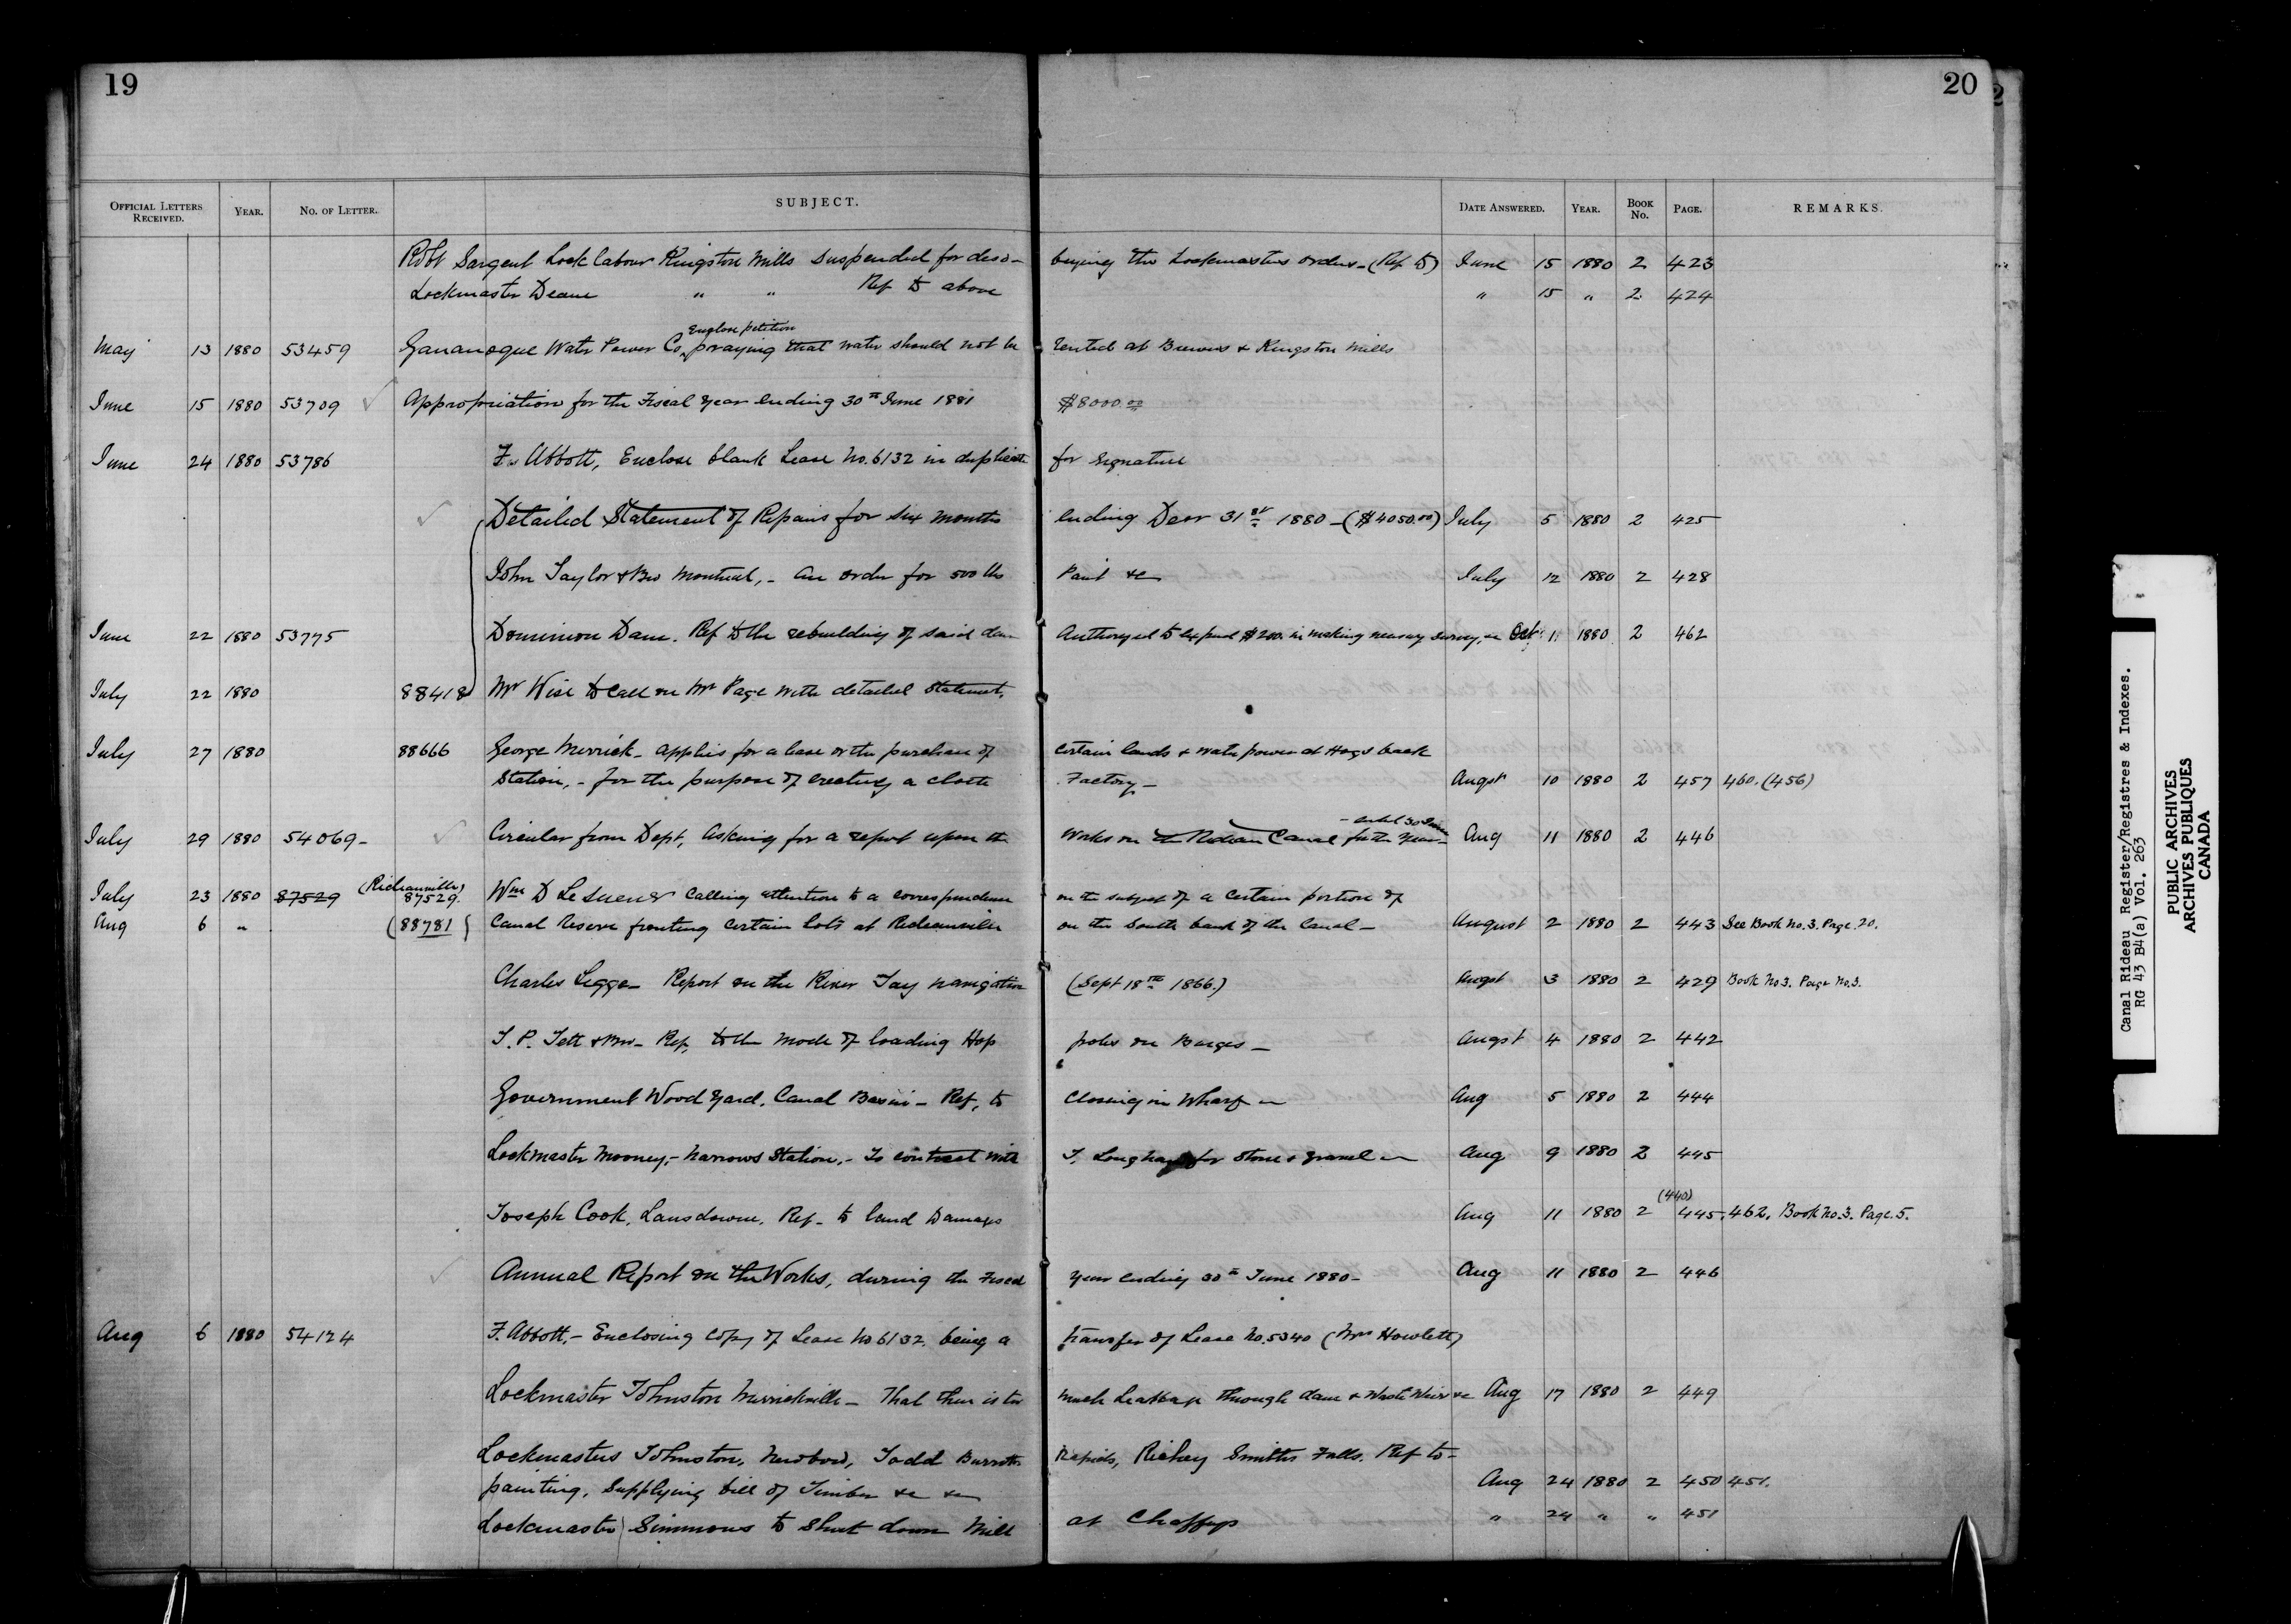 19
20
OFFICIAL LETTERS RECEIVED. YEAR. NO. OF LETTER. SUBJECT. DATE ANSWERED. YEAR. BOOK No. PAGE. REMARKS.
Robt Sargent Lock labour Kingston Mills suspended for diso- beying the Lockmasters orders - (Ref to) June 15 1880 2 423
Lockmaster Deane " " Ref to above " 15 " 2 424
Enclose petition
May 13 1880 53459 Gananoque Water Power Co, praying that water should not be rented at Brewers & Kingston Mills
June 15 1880 53709 Appropriation for the Fiscal year ending 30th June 1881 $8000.00
June 24 1880 53786 F. Abbott, Enclose blank Lease No. 6132 in duplicate for signature
Detailed Statement of Repairs for six months ending Decr 31st 1880 - ($4050.00) July 5 1880 2 425
John Taylor & Bro Montreal, - An order for 500 lbs Paint &c July 12 1880 2 428
June 22 1880 53775 Dominion Dam. Ref to the rebuilding of said dam Authorysed to expend $200. in making necessary survey, &c Oct 1 1880 2 462
July 22 1880 88418 Mr Wise to call on Mr Page with detailed statement,
July 27 1880 88666 George Merrick - applies for a lease or the purchase of certain lands & water power at Hogs back
Station, - for the purpose of erecting a cloth Factory - Augst 10 1880 2 457 460. (456)
- ended 30 June
July 29 1880 54069 - Circular from Dept, Asking for a report upon the works on the Rideau Canal for the year - Aug 11 1880 2 446
(Rideauville)
July 23 1880 87529 87529. Wm D LeSueur calling attention to a correspondence on the subject of a certain portion of
Aug 6 " (88781) Canal Reserve fronting certain lots at Rideauville on the South bank of the Canal - August 2 1880 2 443 See Book No. 3. Page. 20.
Charles Legge - Report on the River Tay navigation (Sept 18th 1866.) Augst 3 1880 2 429 Book No 3. Page No. 3.
J. P. Tett & Bro - Ref, to the mode of loading Hop poles on Barges - Augst 4 1880 2 442
Government Wood Yard. Canal Basin - Ref, to closing in Wharf Aug 5 1880 2 444
Lockmaster Mooney, - Narrows Station, - To contract with T. for stone & gravel Aug 9 1880 2 445
(440)
Joseph Cook, Lansdowne, Ref - to land Damages Aug 11 1880 2 445, 462, Book No. 3. Page. 5.
Annual Report on the Works, during the Fiscal year ending 30th June 1880 - Aug 11 1880 2 446
Aug 6 1880 54124 F. Abbott, - Enclosing copy of Lease No 6132, being a transfer of Lease No. 5340 (Mrs Howlett)
Lockmaster Johnston Merrickville - That there is too much leakage through dam & Waste Weir &c Aug 17 1880 2 449
Lockmasters Johnston, Newboro, Todd Burritts Rapids, Richey Smiths Falls. Ref to -
painting, supplying bill of Timber &c &c Aug 24 1880 2 450 451.
Lockmaster Simmons to shut down Mill at Chaffeys " 24 " " 451
Canal Rideau Register/Registres & Indexes.
RG 43 B4(a) Vol. 263
PUBLIC ARCHIVES
ARCHIVES PUBLIQUES
CANADA